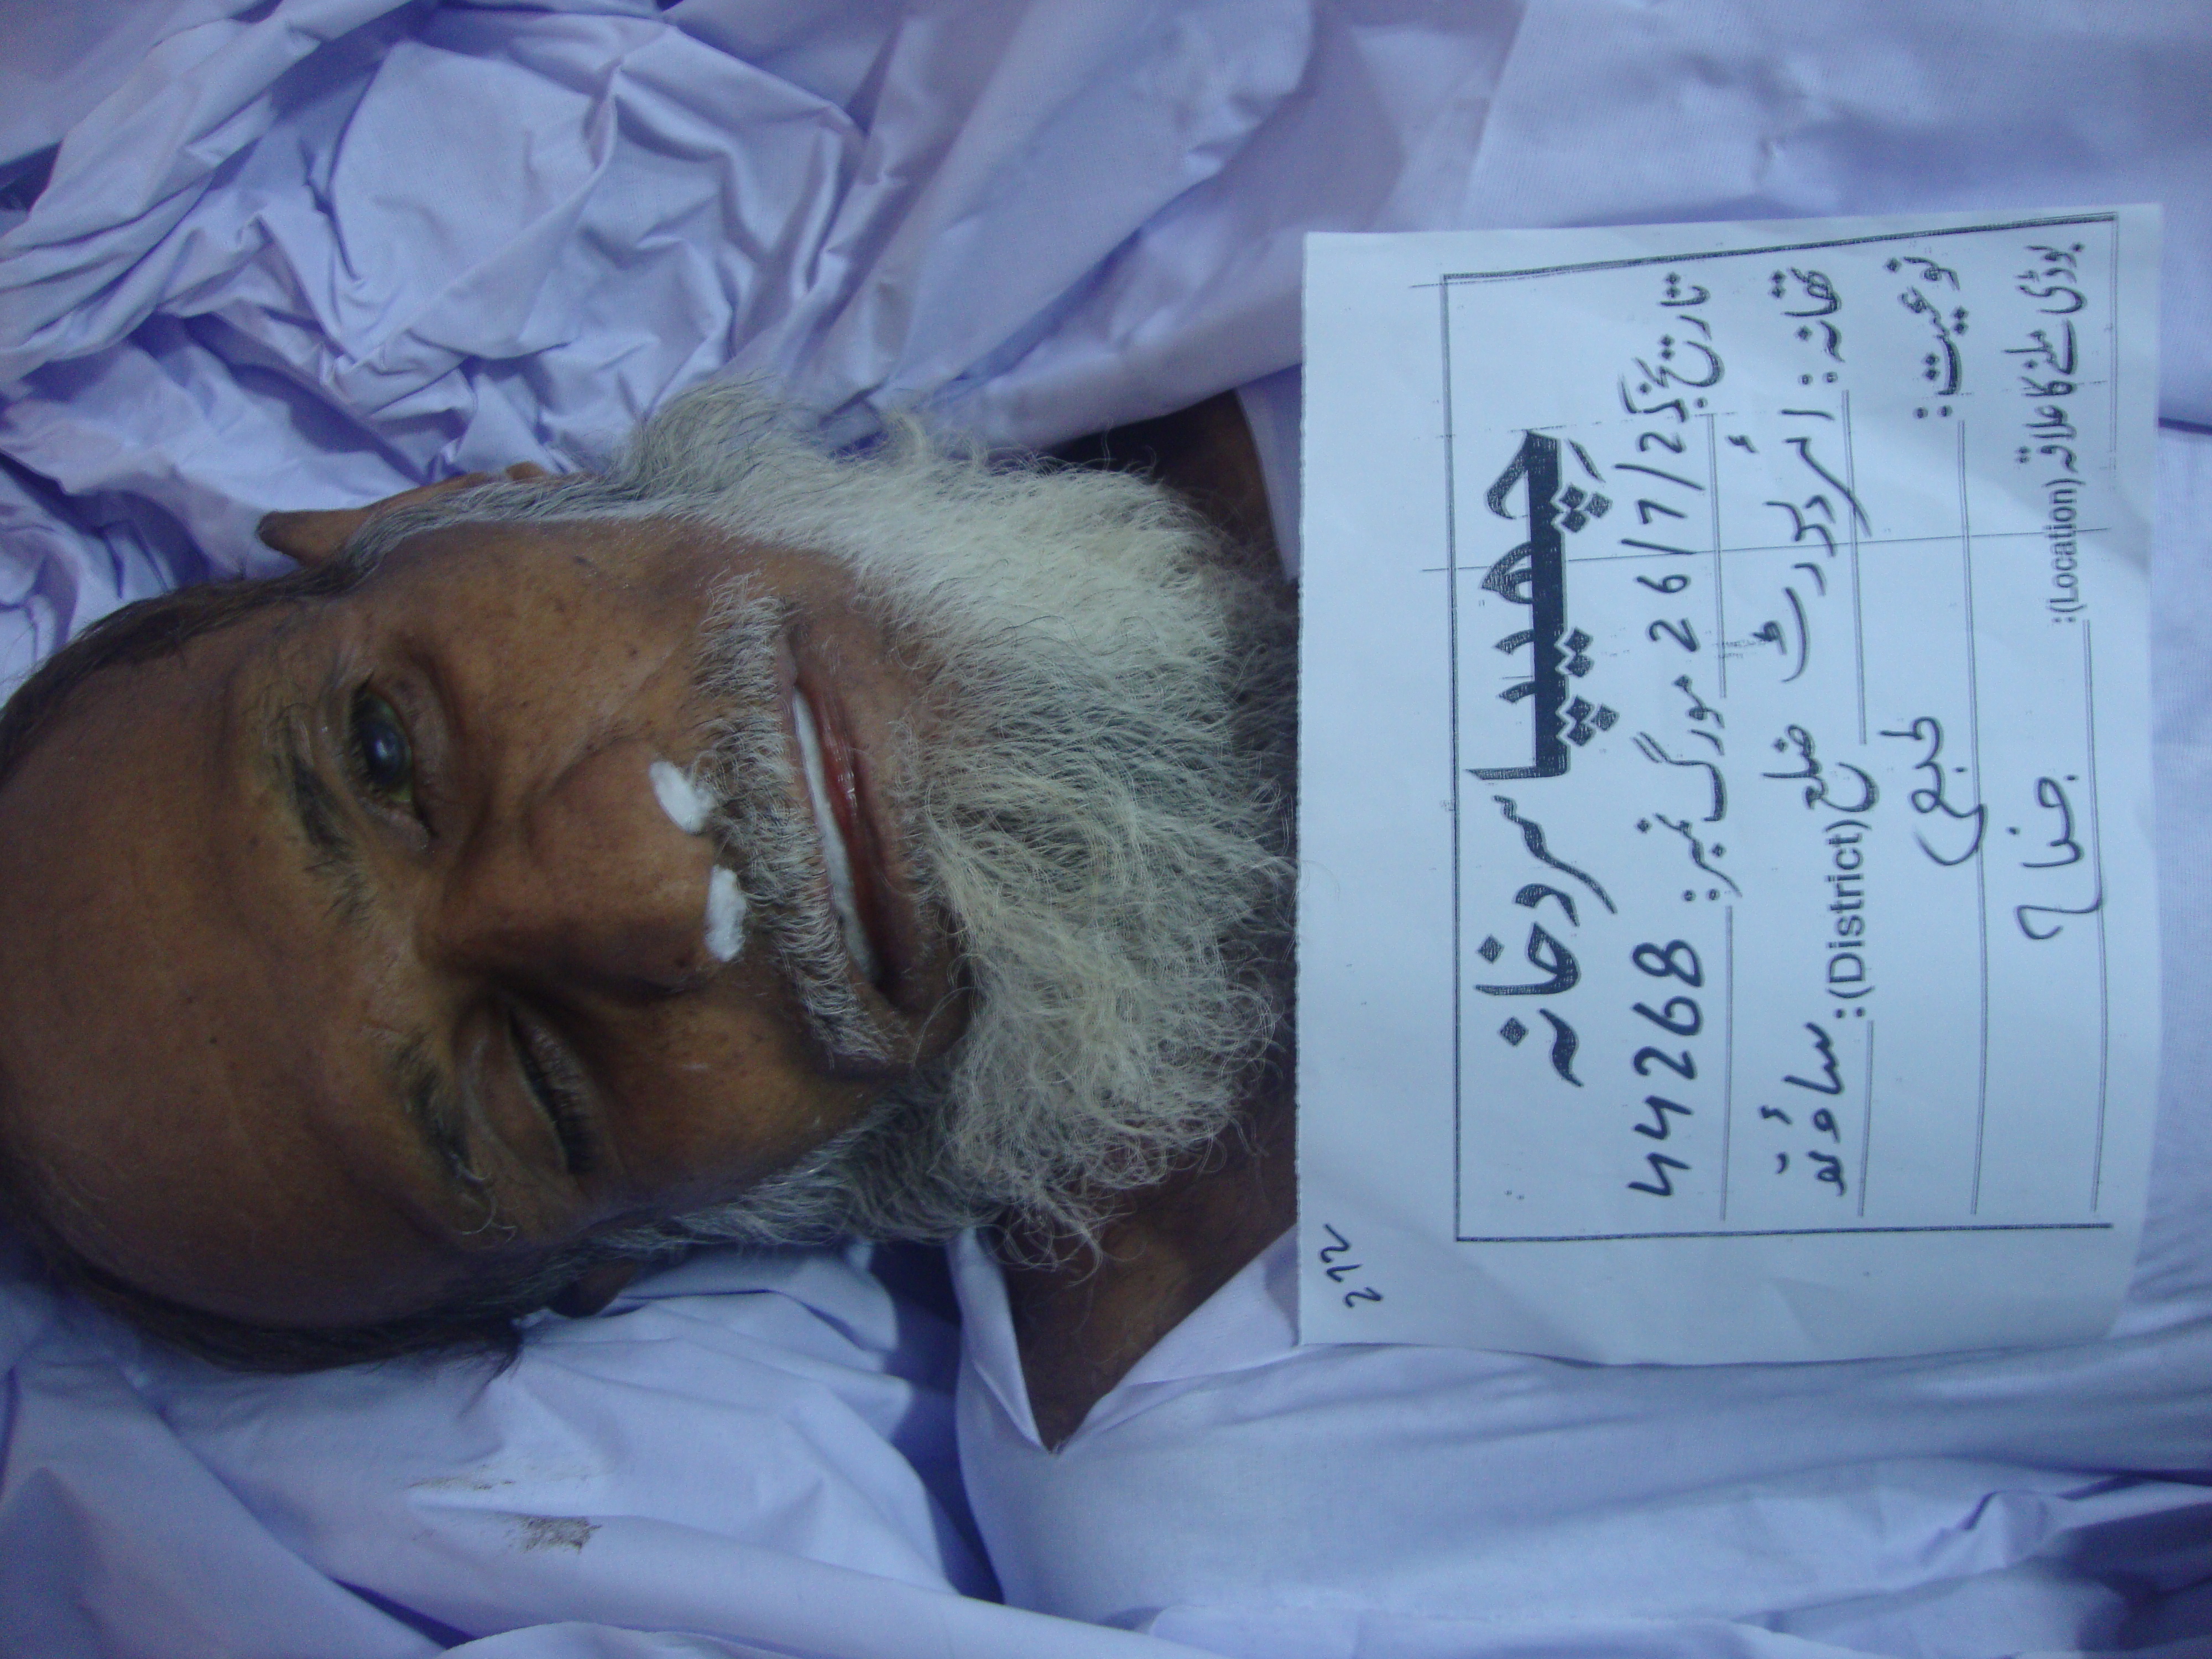 چھیپا سردخانہ
تاریخ: 26/7/22 مورگ نمبر: 44268
تھانہ: ائرپورٹ ضلع (District): ساؤتھ
نوعیت: طبعی
بوڈی ملنے کا علاقہ (Location): جناح